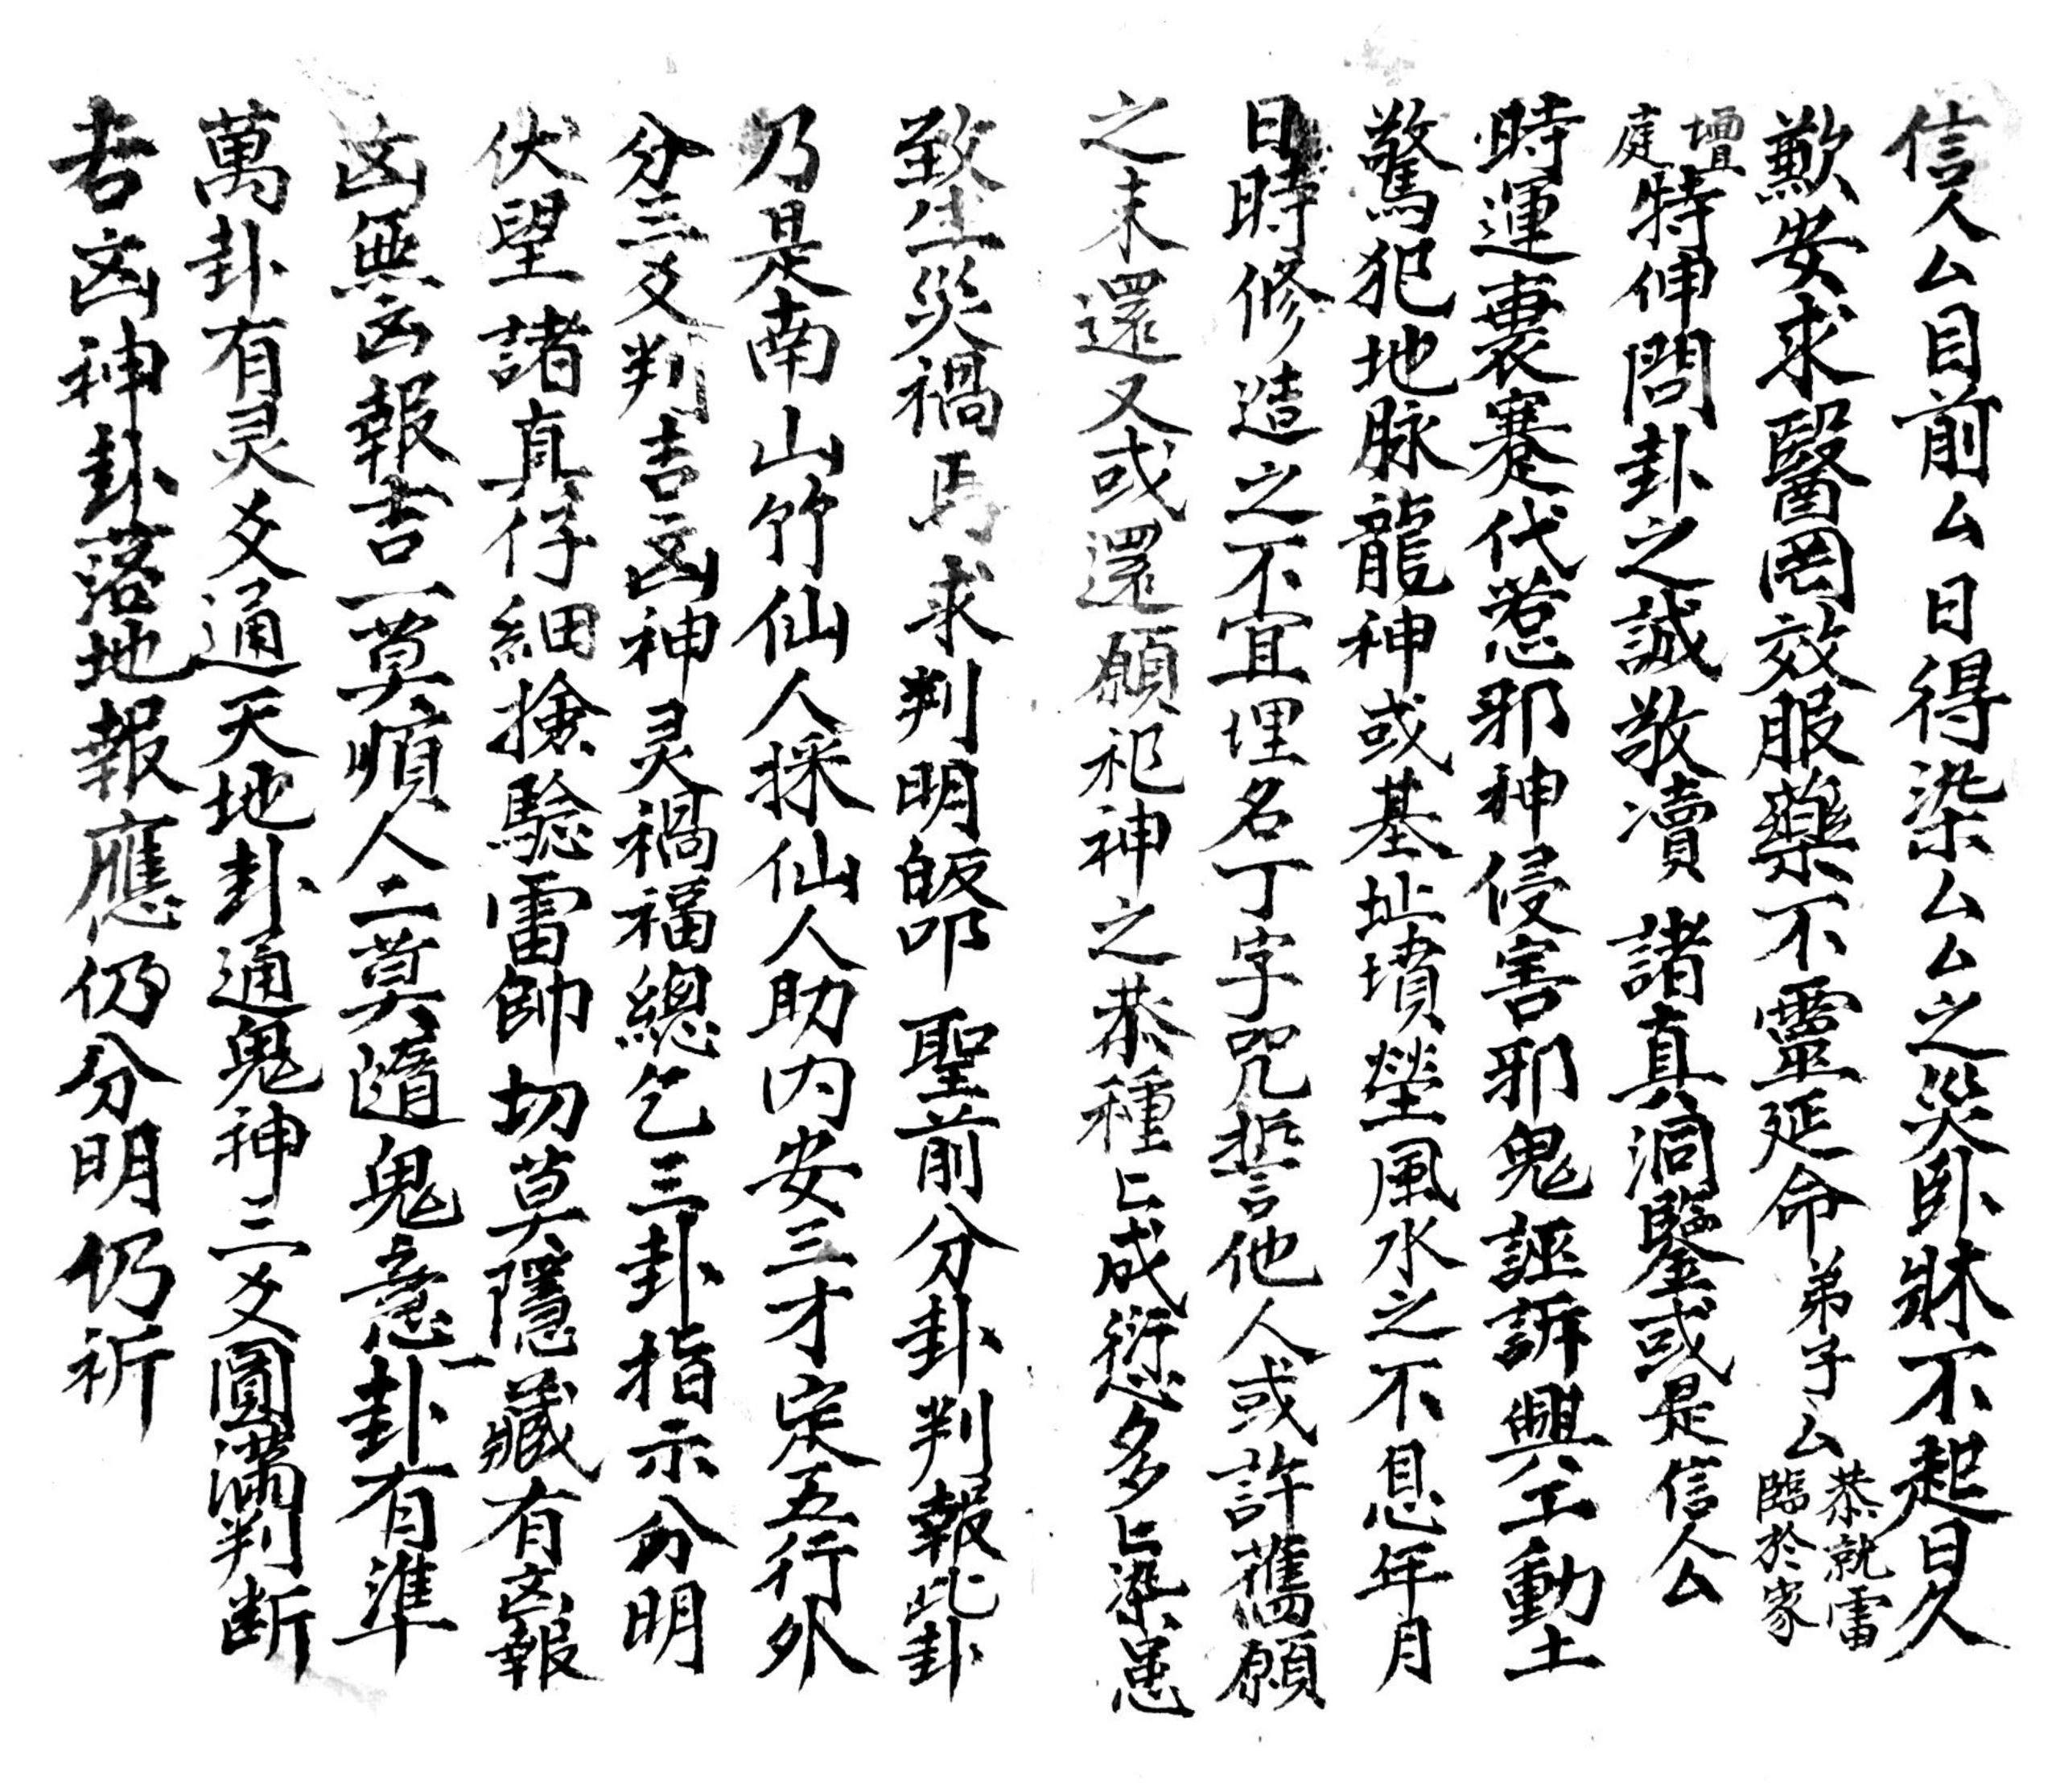 信人厶目前厶日得染厶厶之災卧牀不起日久
歎安求醫罔效服藥不靈延命弟子厶恭就雷臨於家
壇庭特伸問卦之誠敬凟諸真洞鑒或是信人厶
時運衰蹇代惹邪神侵害邪鬼誣訴興工動土
驚犯地脉龍神或基址墳塋風水之不息年月
日時修造之不宜埋名丁字咒誓他人或許舊願
之未還又或還願祀神之恭種〻成愆多〻染患
致生災禍求判明皈叩聖前分卦判報此卦
乃是南山竹仙人採仙人助内安三才定五行外
分三爻判吉凶神灵禍福總乞三卦指示分明
伏望諸真仔細撿驗雷帥切莫隱藏有凶報
凶無凶報吉一莫順人二莫隨鬼意一卦有準
萬卦有灵爻通天地卦通鬼神三爻圓滿判断
吉凶神卦落地報應仍分明仍祈